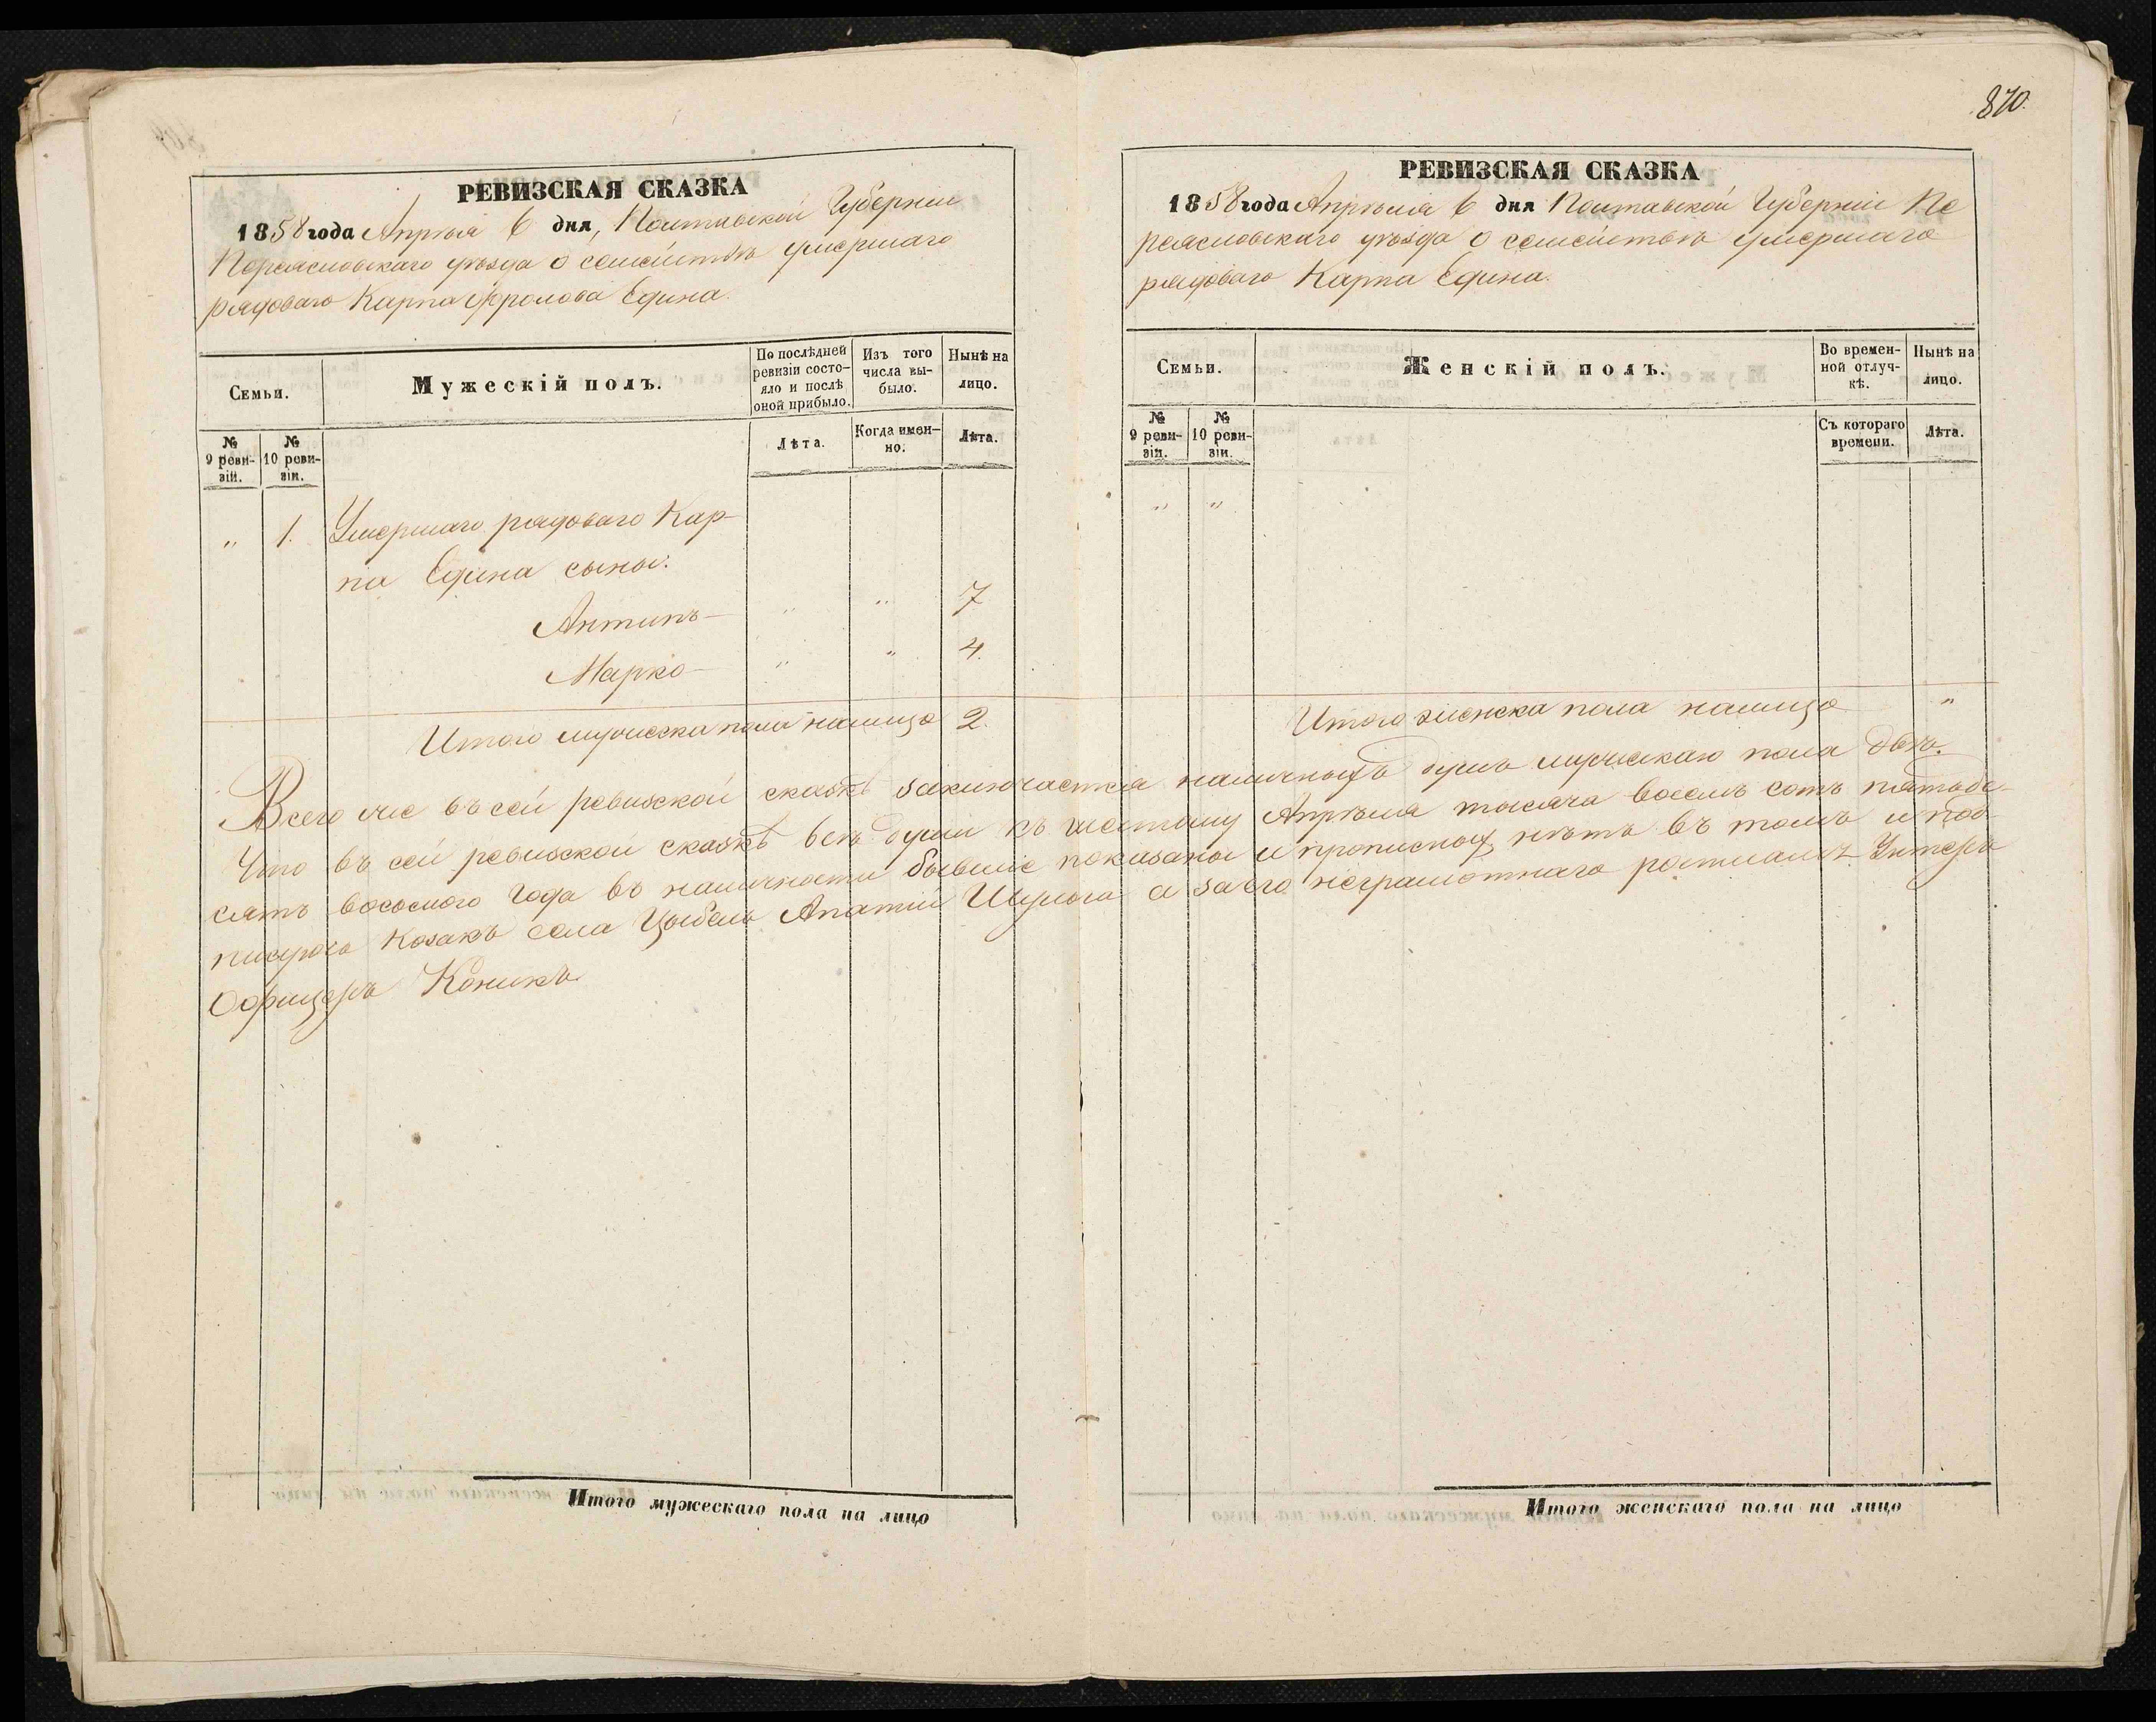 870.
РЕВИЗСКАЯ СКАЗКА
1858 года Апреля 6 дня, Полтавской Губерніи
Переясловскаго уѣзда о семействѣ умершаго
рядоваго Карпа Фролова Едина.
Семьи.
Мужескій полъ.
По послѣдней ревизіи состояло и послѣ оной прибыло.
Изъ того числа выбыло.
Нынѣ на лицо.
№ 9 ревизіи.
№ 10 ревизіи.
Лѣта.
Когда именно.
Лѣта.
" 1. Умершаго рядоваго Кар-
па Едина сыны:
Антипъ " " 7
Марко " " 4.
Итого мужеска пола налицо 2.
РЕВИЗСКАЯ СКАЗКА
1858 года Апрѣля 6 дня Полтавской Губерніи Пе
реясловскаго уѣзда о семействѣ умершаго
рядоваго Карпа Едина.
Семьи.
Женскій полъ.
Во временной отлучкѣ.
Нынѣ на лицо.
№ 9 ревизіи.
№ 10 ревизіи.
Съ котораго времени.
Лѣта.
" "
Итого женска пола налицо "
Всего же въ сей ревизской сказкѣ заключается наличныхъ душъ мужескаго пола двѣ.
Что въ сей ревизской сказкѣ всѣ души къ шестому Апрѣля тысяча восемь сотъ пятьде-
сятъ восьмого года въ наличности бывшіе показаны и прописныхъ нѣтъ въ томъ и под-
писуюсь Козакъ села Цыбель а за его неграмотнаго Унтеръ
Офицеръ Коникъ
Итого мужескаго пола на лицо
Итого женскаго пола на лицо